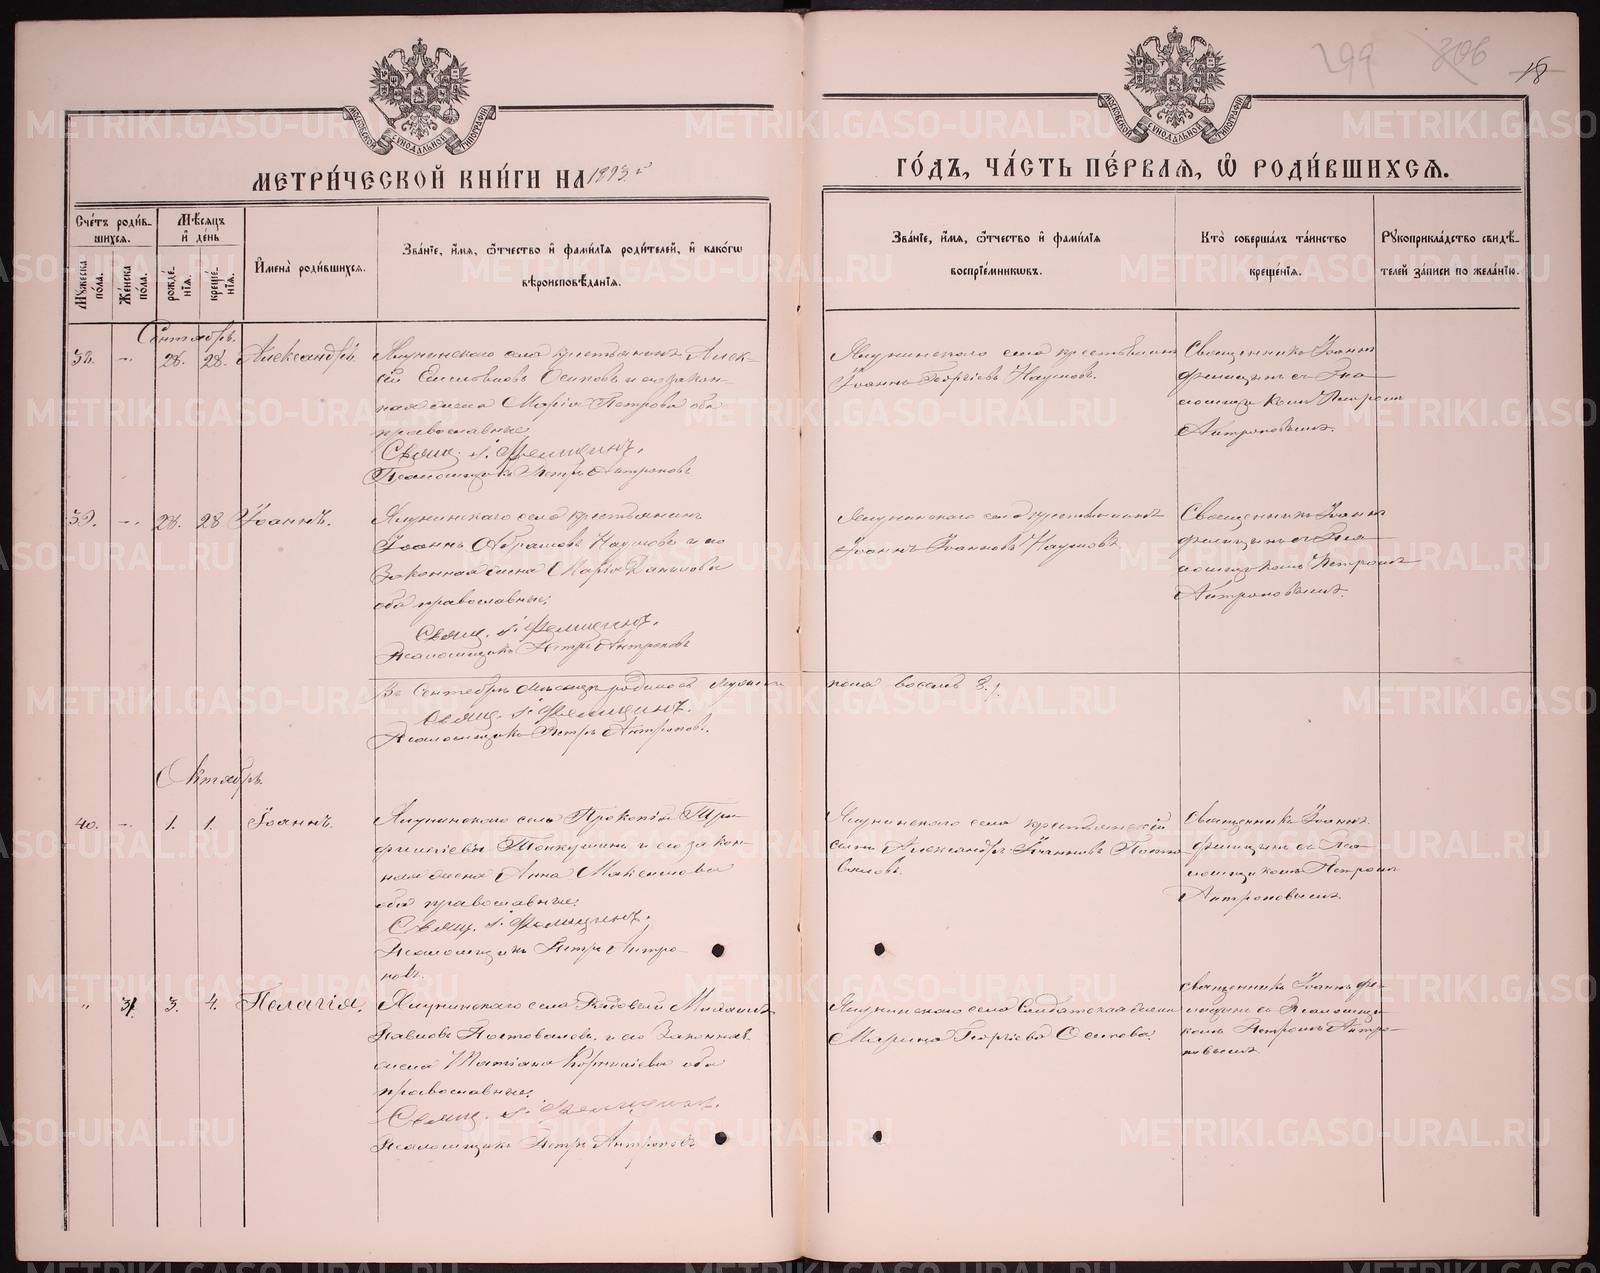 299 306 18
МОСКОВСКОЙ СѴНОДАЛЬНОЙ ТИПОГРАФІИ
МОСКОВСКОЙ СѴНОДАЛЬНОЙ ТИПОГРАФІИ
МЕТРИ́ЧЕСКОЙ КНИ́ГИ НА 1893 г.
ГО́ДЪ, ЧА́СТЬ ПЕ́РВАЯ, Ѡ҆ РОДИ́ВШИХСЯ.
Сче́тъ роди́в-
шихся.
Мѣ́сяцъ
и҆ де́нь
Му́жеска
по́ла.
Же́нска
по́ла.
рожде́-
нїѧ.
креще́-
нїѧ.
И҆мена̀ роди́вшихся.
Зва́нїе, и҆́мя, ѻ҆́тчество и҆ фами́лїя роди́телей, и҆ како́гѡ
вѣроисповѣ́данїя.
Зва́нїе, и҆́мя, ѻ҆́тчество и҆ фами́лїя
воспрїе́мниковъ.
Кто̀ соверша́лъ та́инство
креще́нїя.
Рꙋкоприкла́дство свидѣ́-
телей за́писи по жела́нїю.
Сентябрь.
38. – 28. 28. Александръ.
крестьянинъ Алек-
сій Осиповъ и его закон-
ная жена Марія Петрова оба
православные
Свящ. І. Фелицинъ.
Псаломщикъ Петръ Антроповъ
села крестьянинъ
Іоаннъ Георгіевъ Наумовъ.
Священникъ Іоаннъ
Фелицынъ съ Пса-
ломщикомъ Петромъ
Антроповымъ.
39. – 28. 28 Іоаннъ.
села крестьянинъ
Іоаннъ Абрамовъ Наумовъ и его
законная жена Марія Данилова
оба православные.
Свящ. І. Фелицинъ.
Псаломщикъ Петръ Антроповъ
села крестьянинъ
Іоаннъ Іоанновъ Наумовъ
Священникъ Іоаннъ
Фелицынъ съ Пса-
ломщикомъ Петромъ
Антроповымъ.
Въ Сентябрѣ мѣсяцѣ родилось мужеска
пола восемь 8.
Свящ. І. Фелицинъ.
Псаломщикъ Петръ Антроповъ.
Октябрь.
40. – 1. 1. Іоаннъ.
села Прокопій Три-
и его закон-
ная жена Анна Максимова
оба православные.
Свящ. І. Фелицинъ.
Псаломщикъ Петръ Антро-
повъ.
села крестьянскій
сынъ Александръ Іоанновъ Посто-
валовъ.
Священникъ Іоаннъ
Фелицынъ съ Пса-
ломщикомъ Петромъ
Антроповымъ
" 31. 3. 4. Пелагія.
села Рядовый
Павловъ Постоваловъ и его законная
жена Татіана Корниліева оба
православные.
Свящ. І. Фелицинъ.
Псаломщикъ Петръ Антроповъ
села Солдатская жена
Марина Георгіева Осипова.
Священникъ Іоаннъ Фе-
лицынъ съ Псаломщи-
комъ Петромъ Антро-
повымъ
METRIKI.GASO-URAL.RU